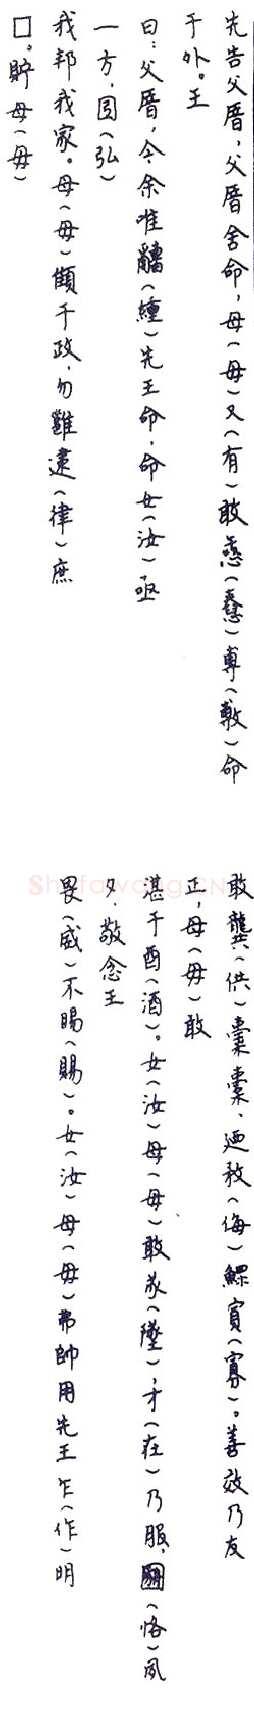 先告父厝，父厝舍命，母（毋）又（有）敢惷（蠢）尃（敷）命
于外。王
曰：父厝，今余唯䌛（緟）先王命，命女（汝）亟
一方，㘝（弘）
我邦我家。母（毋）顀于政，勿雝逮（律）庶
□。貯母（毋）
敢龏（供）橐橐，迺敄（侮）鰥寡（寡）。善效乃友
正，母（毋）敢
湛于酉（酒）。女（汝）母（毋）敢㒸（墜），才（在）乃服，（恪）夙
夕，敬念王
畏（威）不賜（賜）。女（汝）母（毋）弗帥用先王乍（作）明